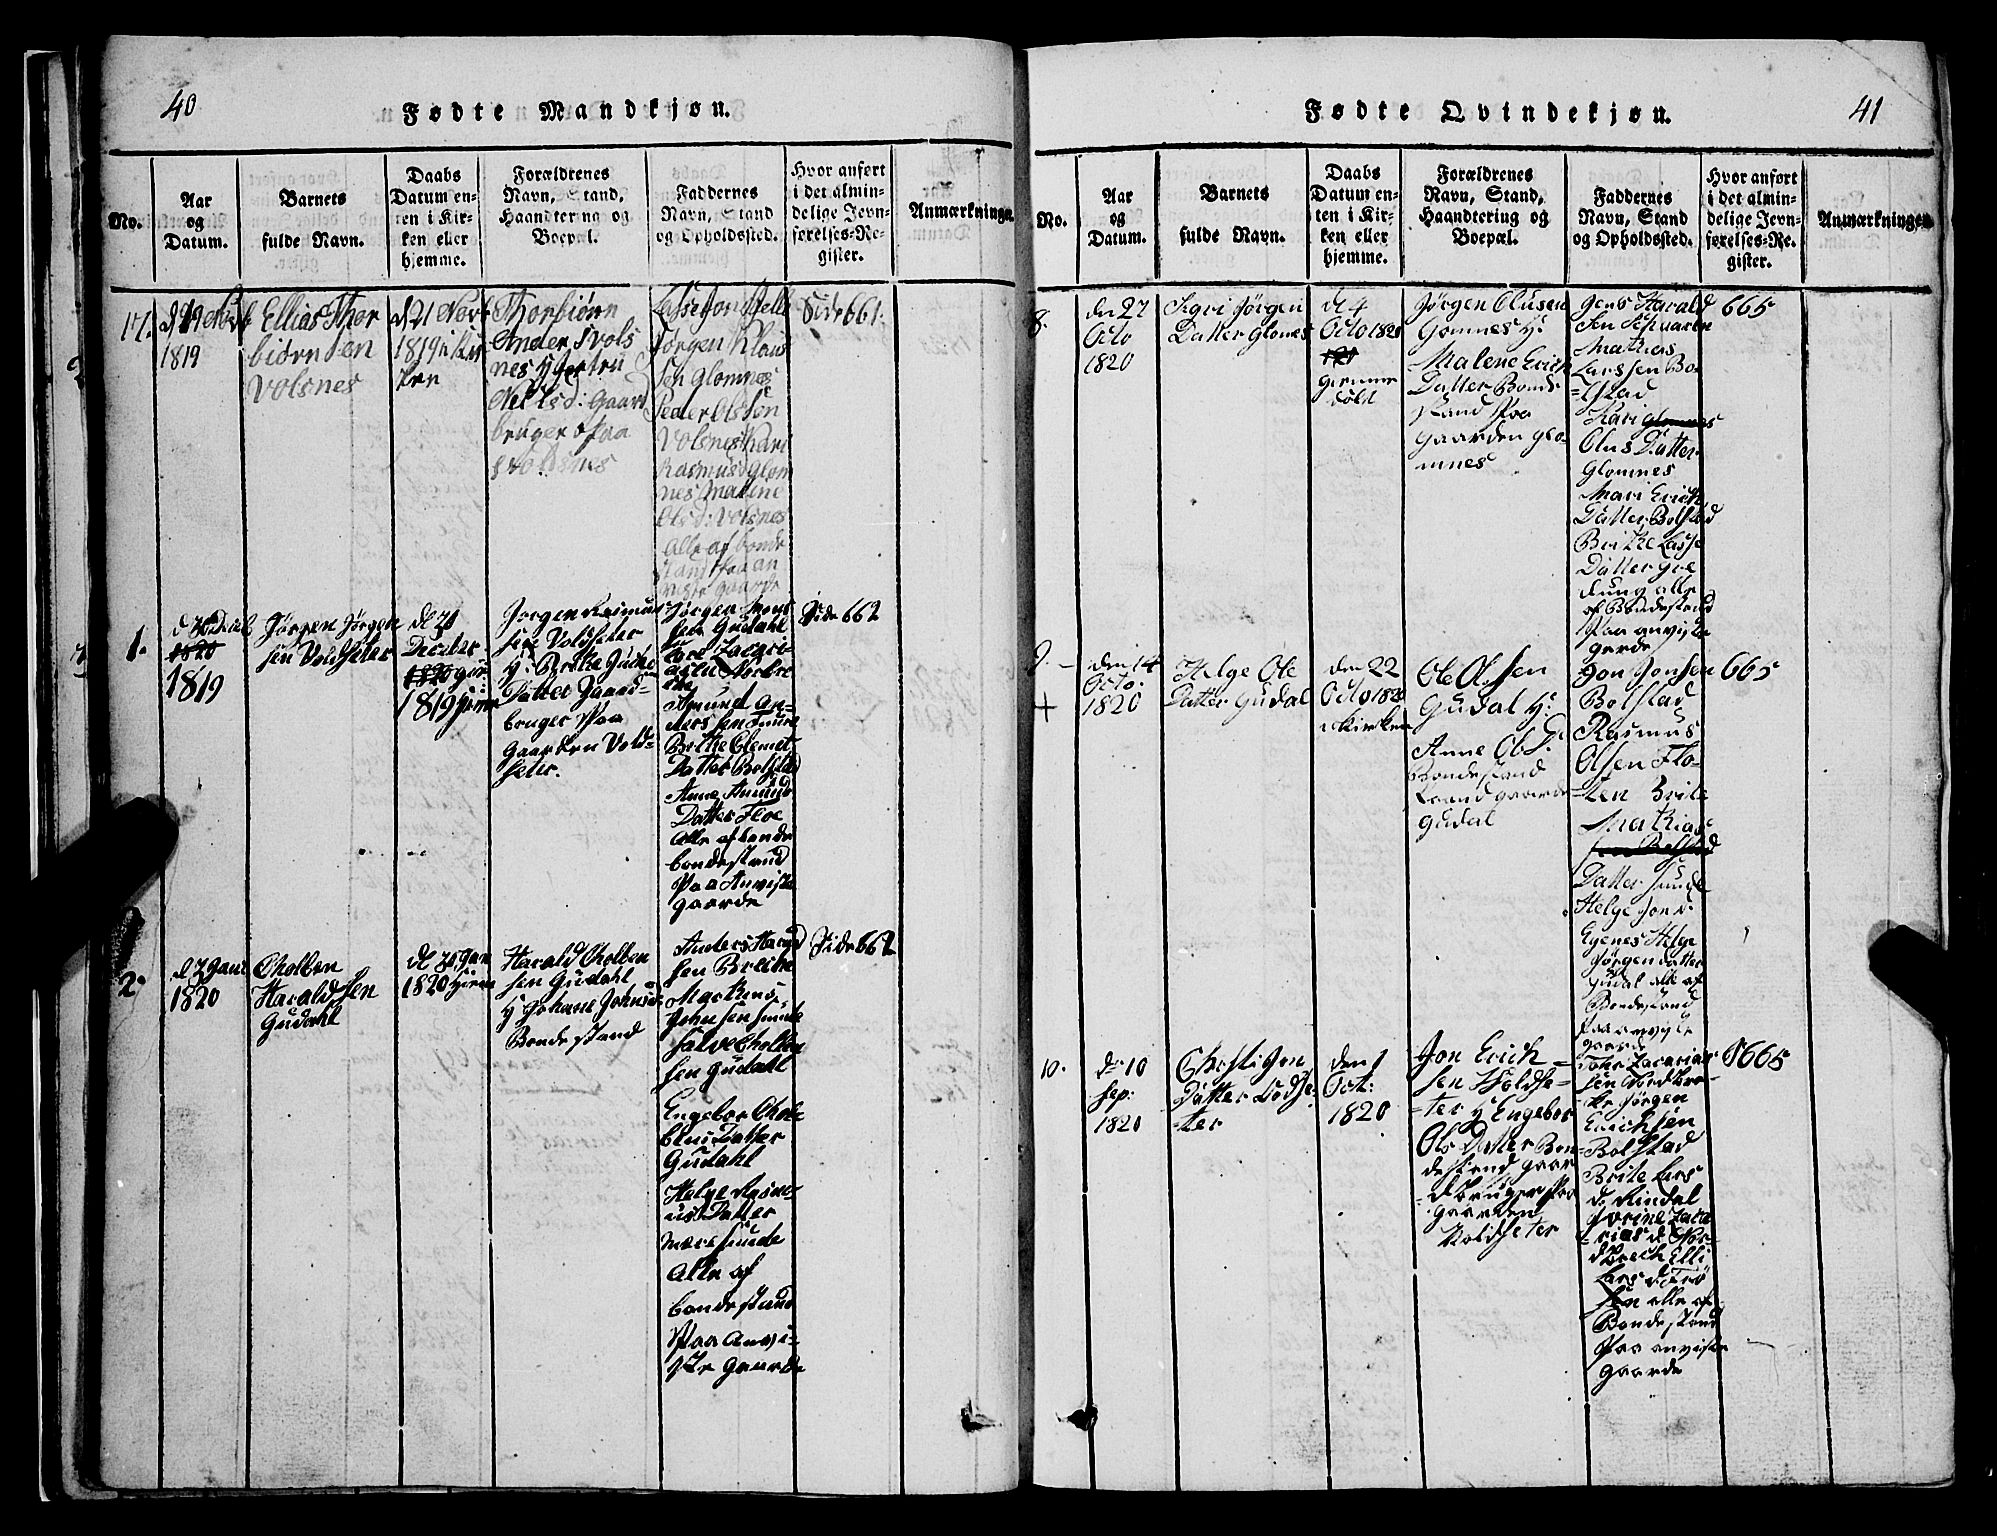 40
Fødte Mandkjøn.
No.
Aar
og
Datum.
Barnets
fulde Navn.
Daabs
Datum en-
ten i Kir-
ken eller
hjemme.
Forældrenes
Navn, Stand,
Haandtering og
Boepæl.
Faddernes
Navn, Stand
og Opholdssted.
Hvor anført
i det almin-
delige Jevn-
førelses-Re-
gister.
Anmærkninger.
17.
1819
Ellias Thor
biørn Sen
Volsnes
d 21 Novb
1819 i Kir
ken
Thorbiørn
Anders Vols
nes
Nels d: gaard
bruger paa
Volsnes
Jørgen Klaus
Sen Glomnes
Peder Olsson
Volsnes Kari
Rasmus d Glom
nes Malene
Ols d: Volsnes
Alle af bonde
stand paa an
viste gaarde
Side 661
1.
1820
1819
Jørgen Jørgen
sen Voldseter
d 21
December
1820
1819
Jørgen Rasmus
sen Voldseter
H: Brithe
Datter Gaard-
bruger Paa
Gaarden Vold-
seter.
Jørgen
sen Gudahl
Amund An-
ders sen
Brithe Clemet
Datter Bolstad
Anne Amund
Datter Floe
Alle af bonde
bondestand
Paa Anviste
gaarde
Side 662
2
1820
Cholben
Harald Sen
Gudahl
1820
Harald Cholben
sen Gudahl
H Johane Johns d:
Bonde stand
Anders Harald
sen
Markus
John sen Sunde
Cholben
sen Gudahl
Engebor Chol
ben Datter
Gudahl
Helge Rasm-
us Datter
Sunde
Alle af
bonde stand
Paa Anvi-
ste Gaarde
Side 662
41
Fødte Qvindekjøn.
No.
Aar
og
Datum.
Barnets
fulde Navn.
Daabs
Datum en-
ten i Kir-
ken eller
hjemme.
Forældrenes
Navn, Stand,
Haandtering og
Boepæl.
Faddernes
Navn, Stand
og Opholdssted.
Hvor anført
i det almin-
delige Jevn-
førelses-Re-
gister.
Anmærkninger.
8.
den 27
Octo
1820
Sigri Jørgen
Datter Glomes
d 4
Octo 1820
Jørgen Clusen
Gomnes H:
Malene Erich
Datter Bonde
stand Paa
Gaarden Glo
mnes
Jens Harald
Sen
Mathias
Larssen Bo
=lstad
Kari Glomnes
Olus Datter
Glomnes
Mari Erich
Datter Bolstad
Brithe Lasse
Datter
alle
af Bondestand
Paa anviste
gaarde
665
9.
den 14
Octo:
1820
Helge Ole
Datter Gudal
den 22
Octo 1820
i Kirken
Ole Olssen
Gudal H:
Anne Ols d:
Bondestand
Paa gaarde
Gudal
Jon Jonsen
Bolstad
Rasmus
Olsen Flo-
=ten Brite
Mathias
sen Bolstad
Datter Sunde
Helge Jon d:
Egenes Helge
Jørgen Datter
Gudal alle af
Bondestand
Paa anviste
gaarde
665
10.
d: 10
Sep:
1820
Jon
Datter Vodse-
=ter
den 1
Oct:
1820
Jon Erich
sen Voldse-
=ter H: Engebor
Ols Datter Bon-
destand gaar
=dbruger Paa
Gaarden
Voldseter
Zacarias
sen Nordbre-
=ke Jørgen
Erichsen
Bolstad
Brite Lars
d: Rindal
Zaca
=rias d: Nor-
dbrech Elli
Lars d:
alle af
Bondestand
Paa anviste
Gaarde
S 665